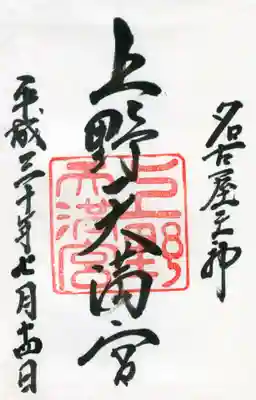 名古屋天神
上野天満宮
上野
天満宮
平成三十年七月十四日